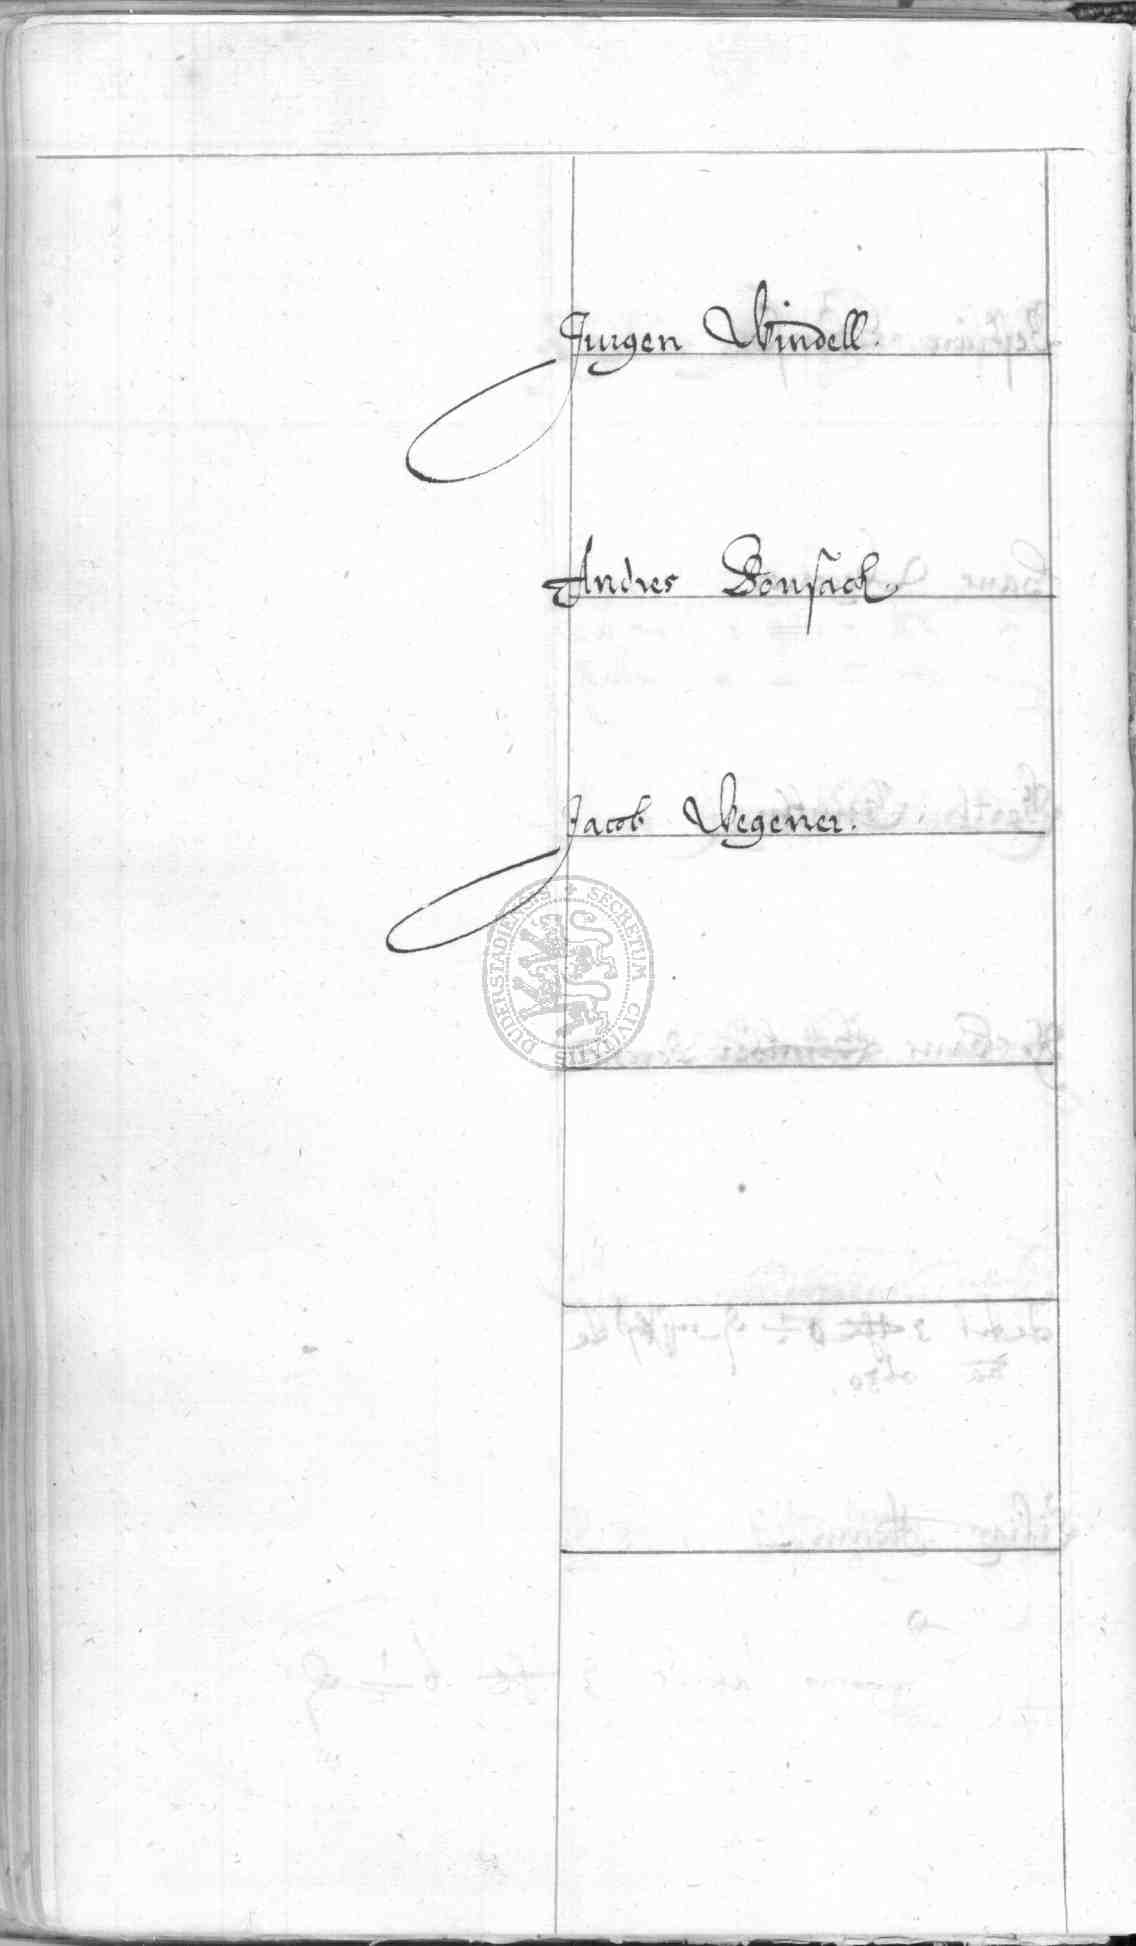 Jurgen Windell.
Andres Bonsack.
Jacob Wegener.
SECRETUM CIVITATIS DUDERSTADIENSIS